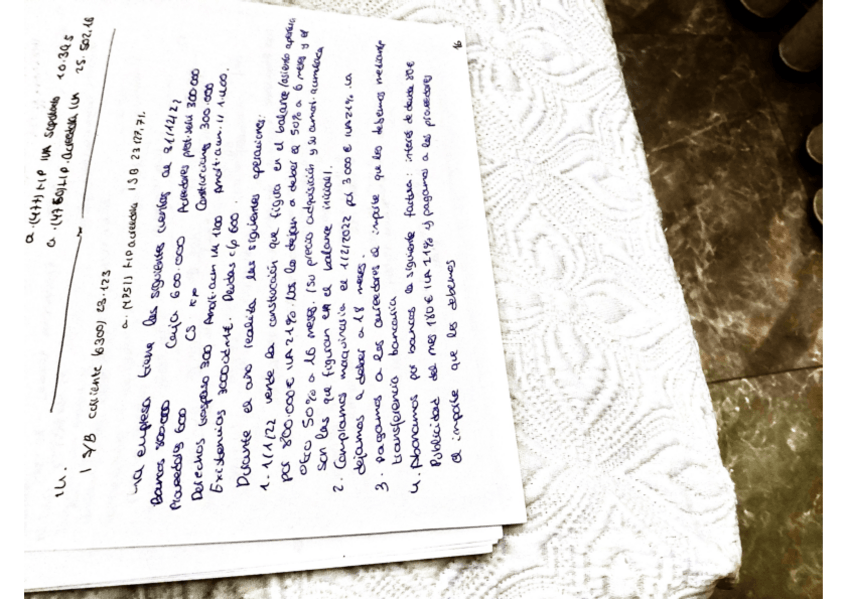 a. (477) HP IVA soportado 10.395
a. (4750) H.P. acreedora IVA 25.502,18
14.
IS/B corriente (6300) 23.123
a. (4752) H.P acreedora ISB 23.127,71.
una empresa tiene las siguientes cuentas al 31/12/21
Bancos 300.000 Caja 600.000 Acreedores prest. serv 300.000
Proveedores 600 CS Construcciones 300.000
Derechos traspaso 300 Amort. acum IN 1200 Amort. acum. 
Existencias 3000 Deudas c/p 600.
Durante el año realiza las siguientes operaciones:
1. 1/1/22 vende la construcción que figura en el balance (asiento apertura
por 200.000 € IVA 21%. Los le dejan a deber el 50% a 6 meses y el
otro 50% a 16 meses. (su precio adquisición y su amort. acumulada
son las que figuran en el balance inicial).
2. Compramos maquinaria el 1/2/2022 por 3000 € IVA 21%. La
dejamos a deber a 18 meses.
3. Pagamos a los acreedores el importe que les debemos mediante
transferencia bancaria
4. Abonamos por bancos la siguiente factura: interés de deuda 20 €
Publicidad del mes 180 € IVA 21% y pagamos a los proveedores
el importe que les debemos